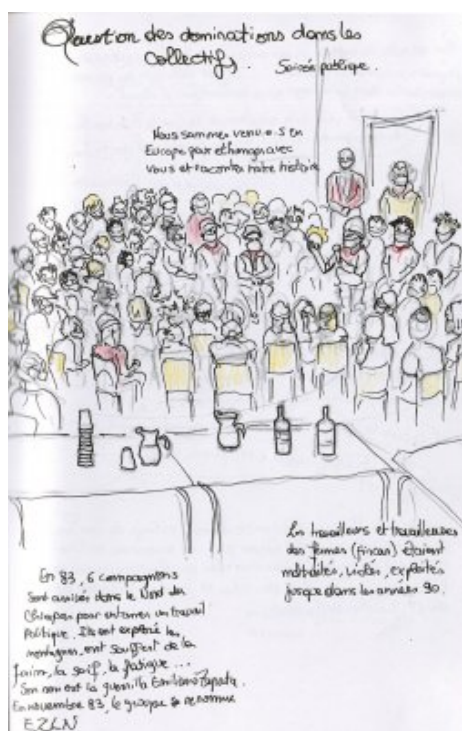 Question des dominations dans les
Collectifs. Soirée publique.
Nous sommes venu.e.s en
Europe pour échanger avec
vous et raconter notre histoire
Les travailleurs et travailleuses
des fermes (fincas) étaient
maltraités, violés, exploités
jusque dans les années 90.
En 83, 6 compagnons
sont arrivés dans le Nord du
Chiapas pour entamer un travail
politique. Ils ont exploré les
montagnes, ont souffert de la
faim, la soif, la fatigue...
Son nom est la guerilla Emiliano Zapata.
En novembre 83, le groupe se renomme
EZLN